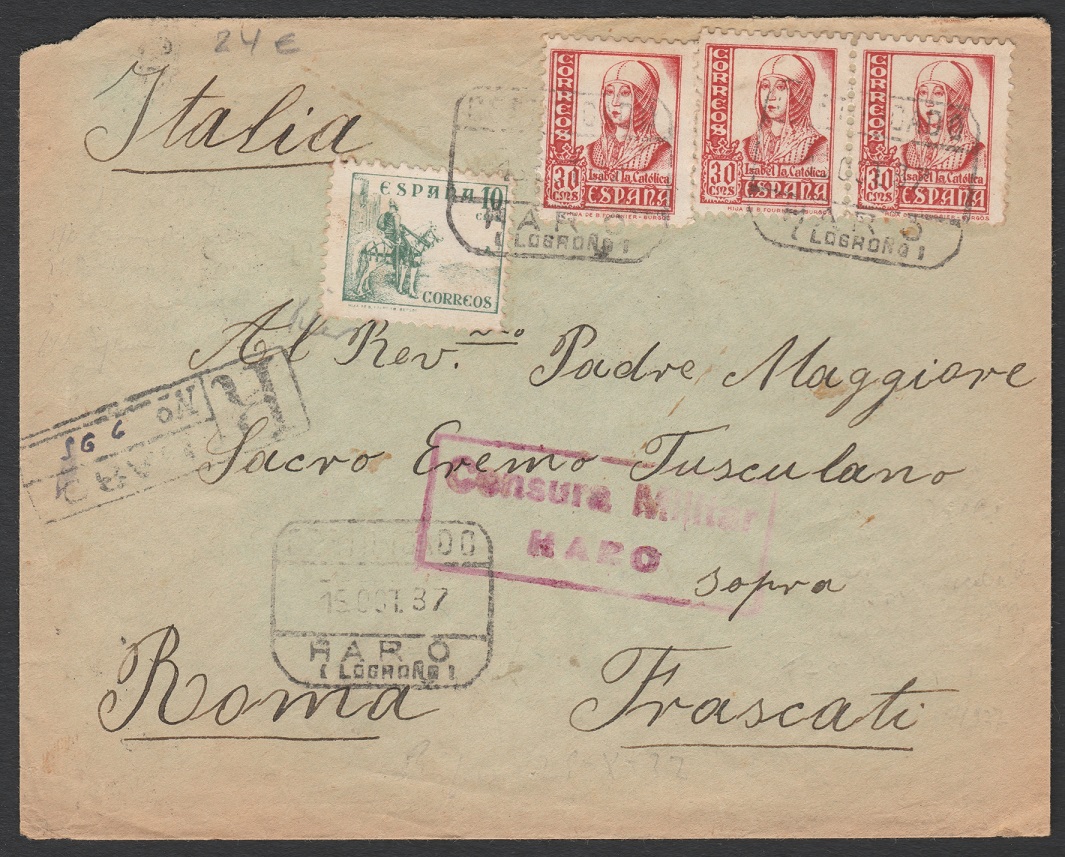 24 €
Italia
CORREOS
30 CMS
Isabel la Católica
ESPAÑA
HIJA DE B. FOURNIER-BURGOS
CORREOS
30 CMS
Isabel la Católica
ESPAÑA
HIJA DE B. FOURNIER-BURGOS
CORREOS
30 CMS
Isabel la Católica
ESPAÑA
HIJA DE B. FOURNIER-BURGOS
HARO
(LOGROÑO)
HARO
(LOGROÑO)
ESPAÑA 10
CORREOS
Al Rev.mo Padre Maggiore
R
No
HARO
Sacro Eremo Tusculano
Censura Militar
HARO
sopra
CERTIFICADO
15 OCT. 37
HARO
(LOGROÑO)
Roma Frascati